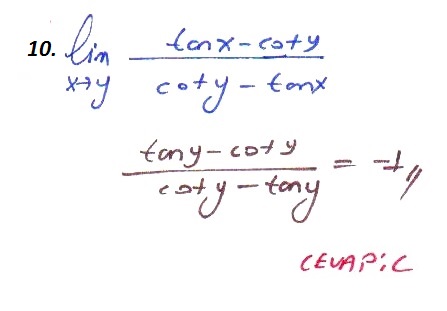 10. lim x→y (tanx - coty) / (coty - tanx)
(tany - coty) / (coty - tany) = -1
CEVAP: C